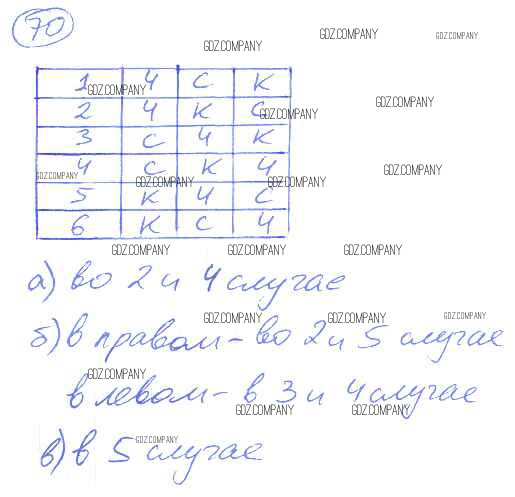 70
GDZ.COMPANY
GDZ.COMPANY
GDZ.COMPANY
1 Ч С К
GDZ.COMPANY
2 Ч К С
GDZ.COMPANY
GDZ.COMPANY
3 С Ч К
4 С К Ч
GDZ.COMPANY
GDZ.COMPANY
GDZ.COMPANY
GDZ.COMPANY
5 К Ч С
6 К С Ч
GDZ.COMPANY
GDZ.COMPANY
GDZ.COMPANY
а) во 2 и 4 случае
GDZ.COMPANY
GDZ.COMPANY
GDZ.COMPANY
б) в правом – во 2 и 5 случае
GDZ.COMPANY
в левом – в 3 и 4 случае
GDZ.COMPANY
GDZ.COMPANY
GDZ.COMPANY
в) в 5 случае